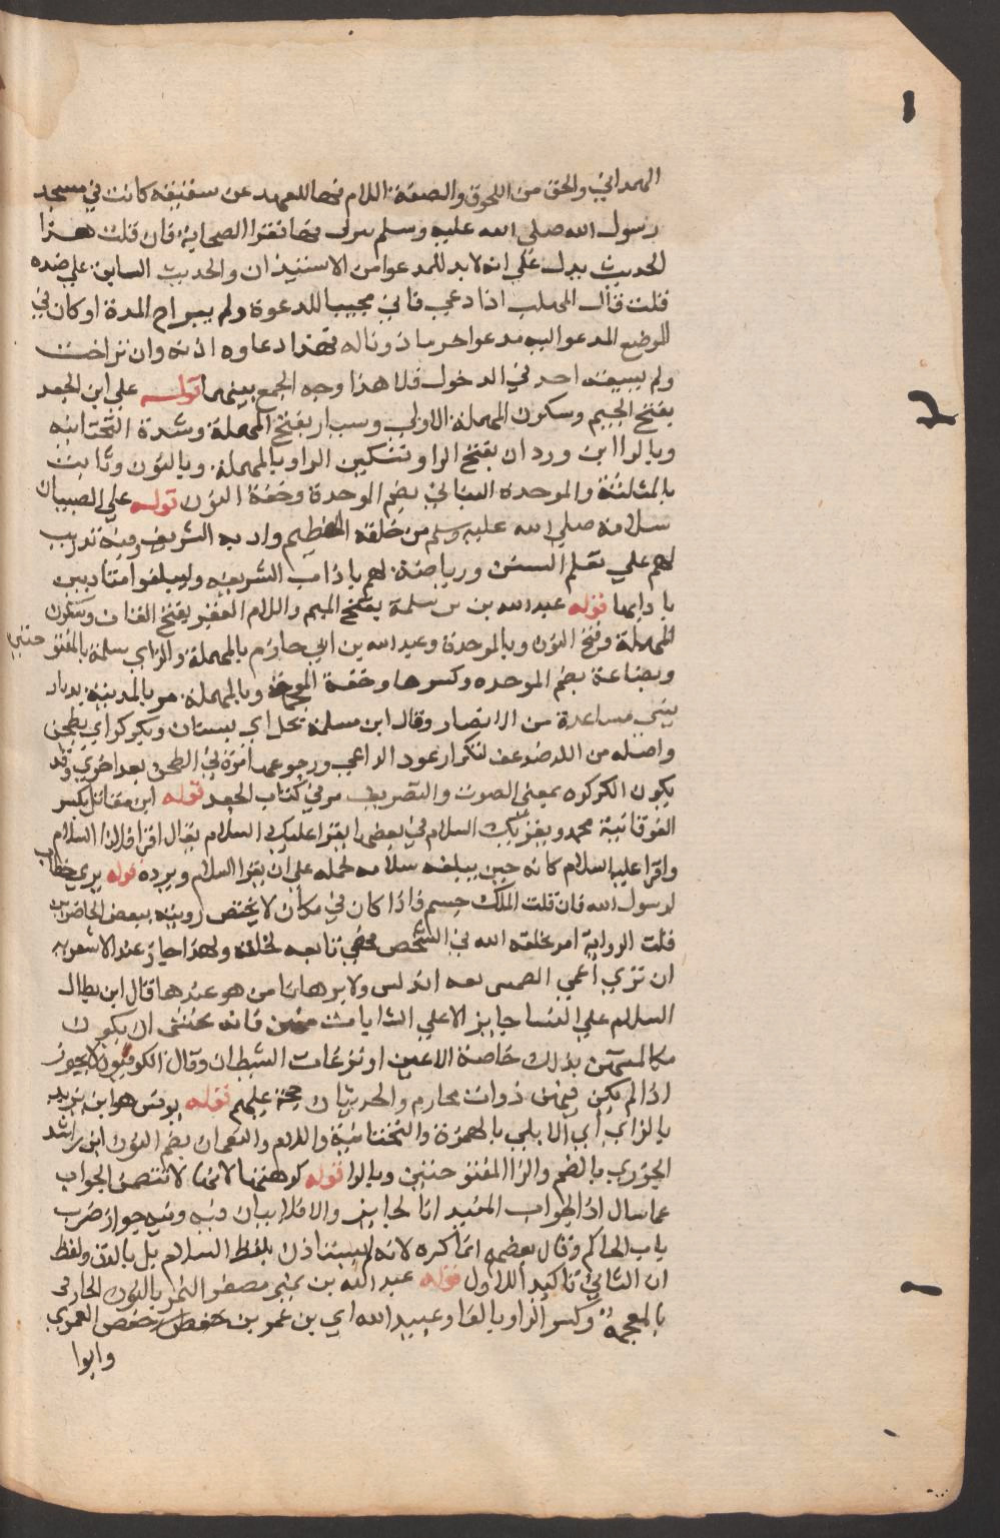 الهمداني والحق من اللحوق والصفة اللام فيها للعهد عن سقيفة كانت في مسجد
رسول الله صلي الله عليه وسلم ينزل فيها فقرا الصحابة فان قلت هذا
الحديث يدل علي انه لابد للمدعوا من الاستيذان والحديث السابق علي ضده
قلت قال المهلب اذا دعي فاتي مجيبا للدعوة ولم يتراخ المدة او كان في
الموضع المدعو اليه مدعوا اخر ماذونا له فهذا دعاوه اذنه وان تراخت
ولم يسبقه احد في الدخول فلا هذا وجه الجمع بينهما قوله علي ابن الجعد
بفتح الجيم وسكون المهملة الاولي وسيار بفتح المهملة وشدة التحتانية
وبالرا ابن وردان بفتح الواو وتسكين الرا وبالمهملة وبالنون وثابت
بالمثلثة والموحدة البناني بضم الموحدة وخفة النون قوله علي الصبيان
سلامه صلي الله عليه وسلم من خلقه العظيم وادبه الشريف وفيه تدريب
لهم علي تعلم السنن ورياضة لهم باداب الشريعة وليبلغوا متادبين
بادابها قوله عبد الله بن مسلمة بفتح الميم واللام القعنبي بفتح القاف وسكون
المهملة وفتح النون وبالموحدة وعبد الله بن ابي حازم بالمهملة والزاي سلمة بالمفتوحتين
وبضاعة بضم الموحدة وكسرها وخفة المعجمة وبالمهملة هو بالمدينة بديار
بني ساعدة من الانصار وقال ابن مسلمة نخل اي بستان وتكركر اي يطحن
واصله من الكر ضوعف لتكرار عود الراحي ورجوعها مرة في الطحن بعد اخري وقد
يكون الكركرة بمعني الصوت والتصريف مر في كتاب الجمعة قوله ابن مقاتل بكسر
الفوقانية محمد ويقرئك السلام في بعضها يقرا عليك السلام يقال اقرا فلانا السلام
واقرا عليه السلام كانه حين يبلغه سلامه يحمله علي ان يقرا السلام ويرده قوله يري خطاب
لرسول الله فان قلت الملك جسم فاذا كان في مكان لا يختص رويته ببعض الحاضرين
قلت الروية امر يخلقه الله في الشخص فهي تابعة لخلقه ولهذا جاز عند الاشعرية
ان تري اعمي الصين بقة اندلس ولا يراها من هو عندها قال ابن بطال
السلام علي النسا جايز الا علي الشابات منهن فانه يخشي ان يكون
مكالمتهن بذلك خاصة الاعين او نزغات الشيطان وقال الكوفيون لا يجوز
اذا لم يكن فيهن ذوات محارم والحديثان حجة عليهم قوله يونس هو ابن يزيد
بالزاي اي الايلي بالهمزة والتحتانية واللام والنعمان بضم النون ابن راشد
الجزري بالضم والزا المفتوحتين وبالرا قوله كرهها لانها لا تتضمن الجواب
عما سال اذ الجواب المفيد انا لجابر والا فلا بيان فيه وفيه جواز ضرب
باب الحاكم وقال بعضهم انما كره لانه لم يستاذن بلفظ السلام بل بالدق ولفظ
انا الثاني تاكيد للاول قوله عبد الله بن نمير مصغر النمر بالنون الخارفي
بالمعجمة وكسر الرا وبالفا وعبيد الله اي بن عمر بن حفص العمري
وابوا